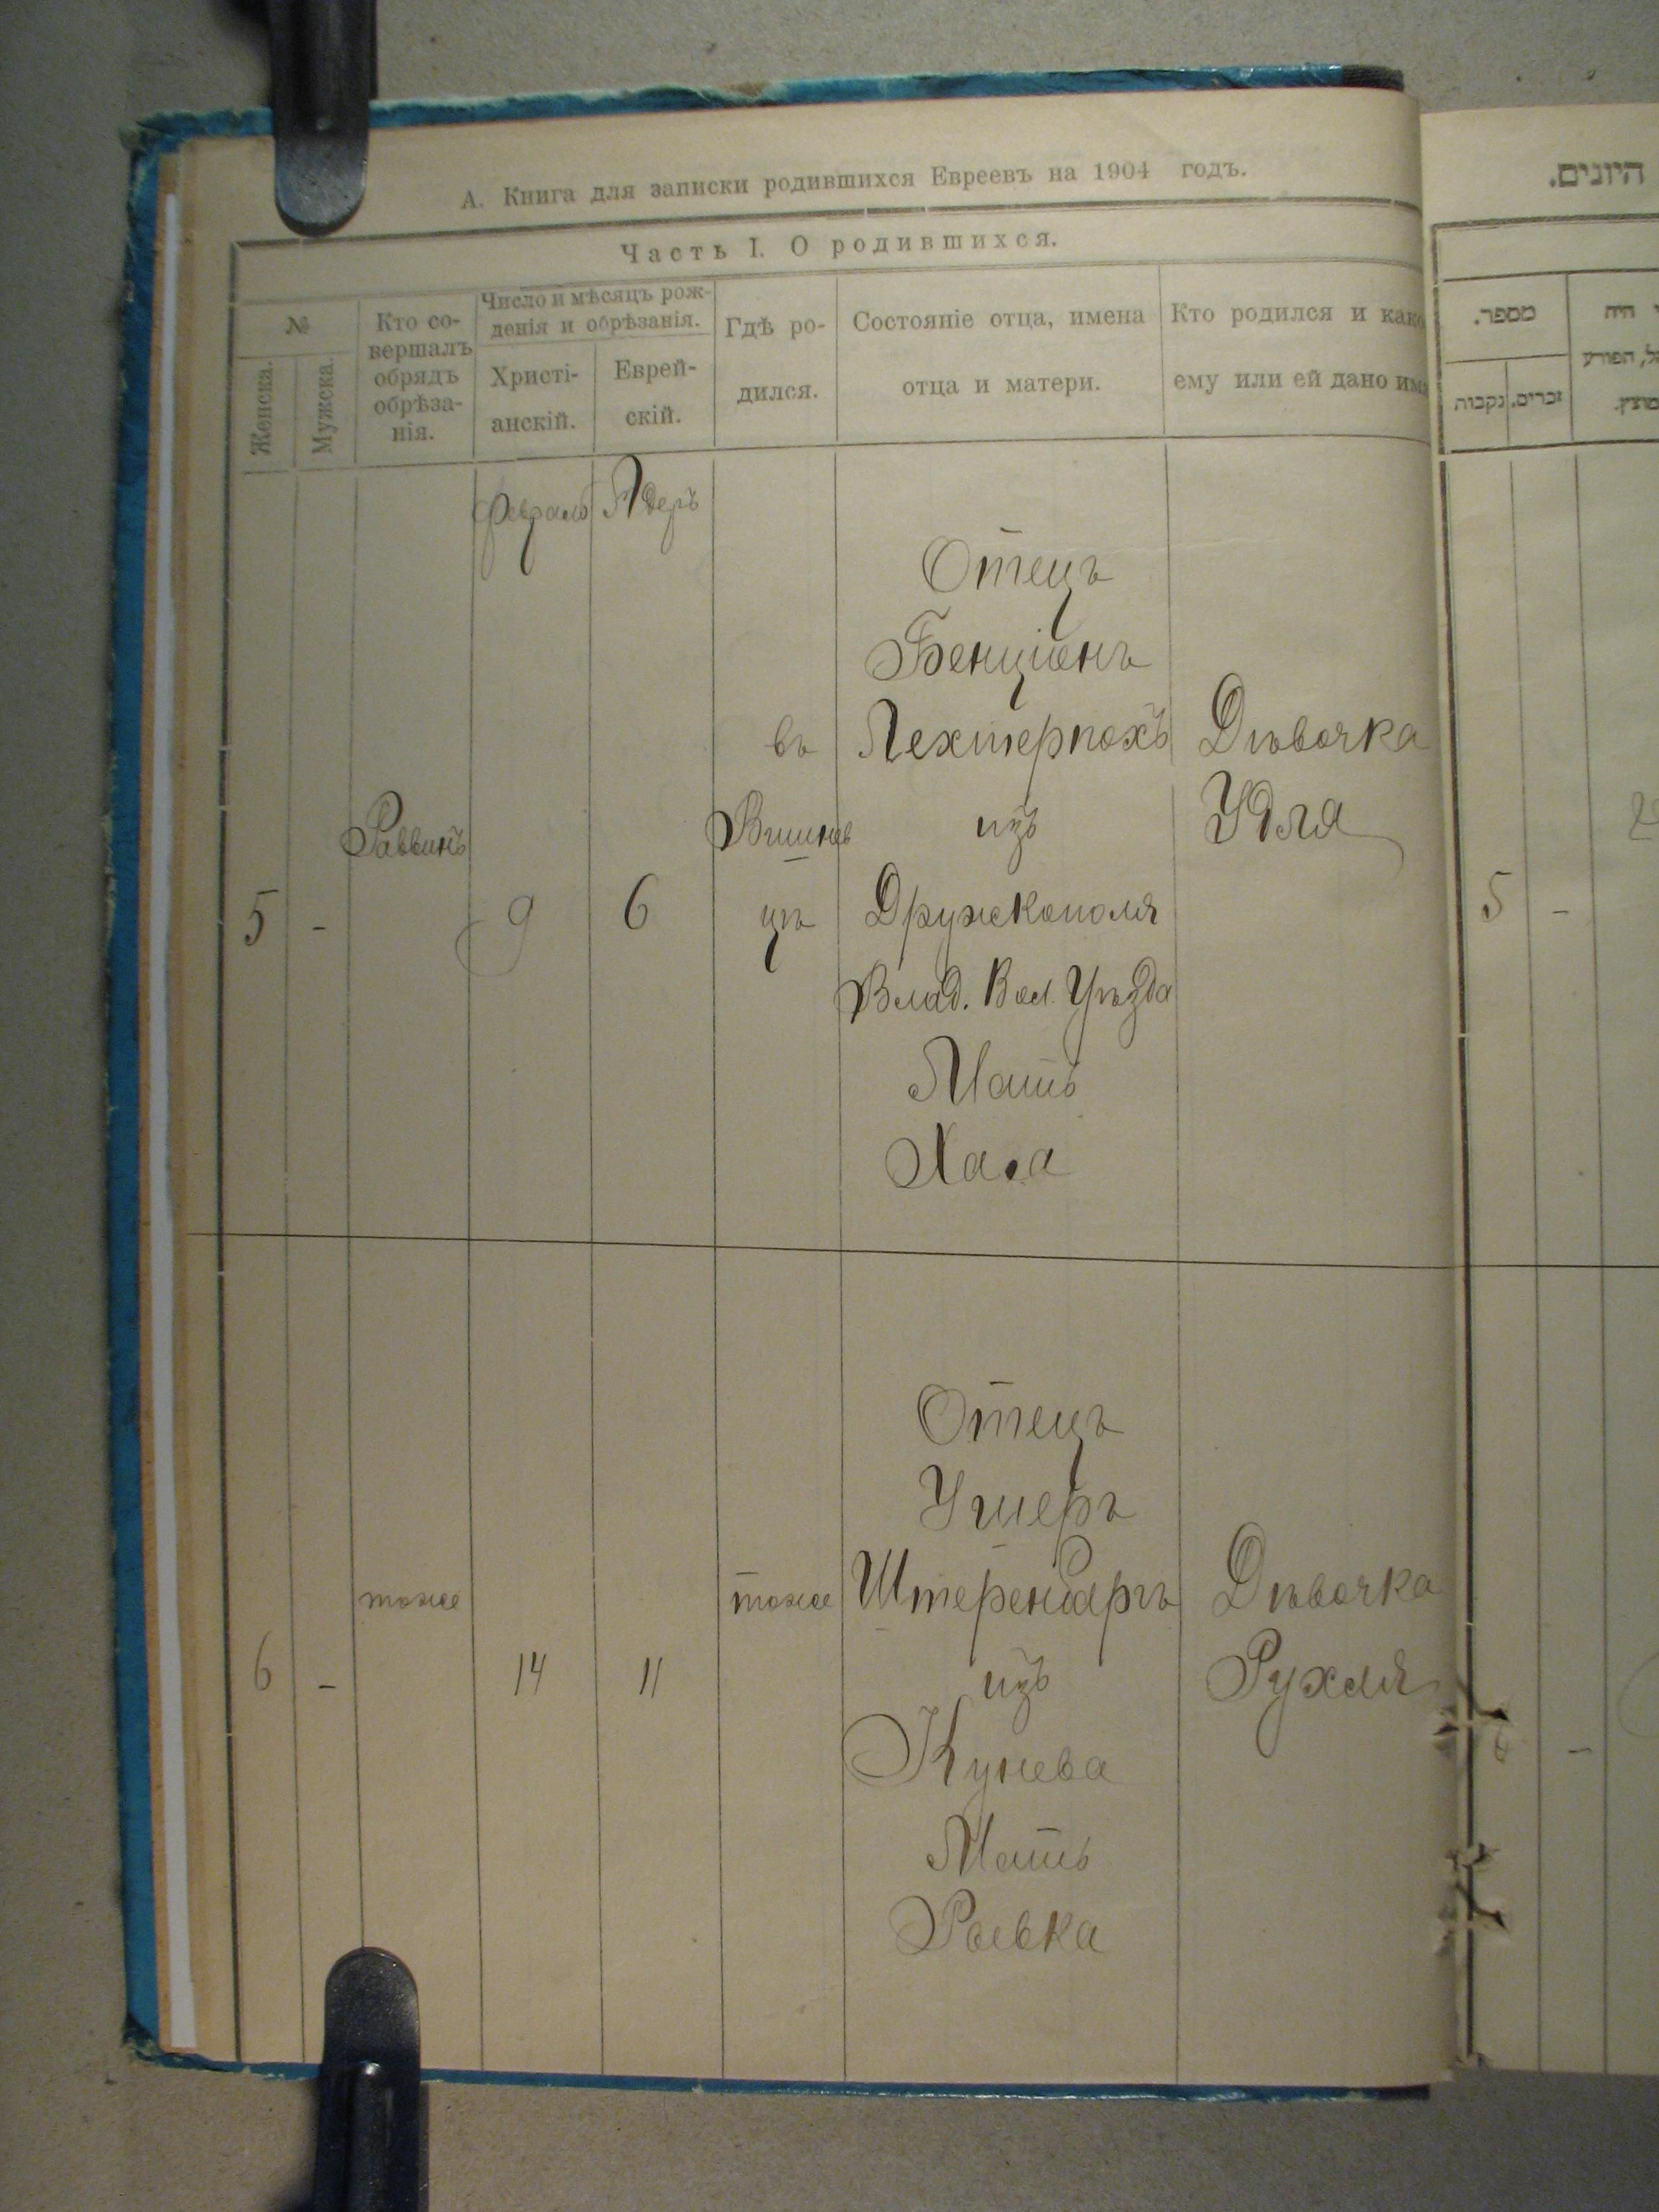 А. Книга для записки родившихся Евреевъ на 1904 годъ.
Часть I. О родившихся.
№
Женска.
Мужска.
Кто со-
вершалъ
обрядъ
обрѣза-
нія.
Число и мѣсяцъ рож-
денія и обрѣзанія.
Христі-
анскій.
Еврей-
скій.
Гдѣ ро-
дился.
Состояніе отца, имена
отца и матери.
Кто родился и како
ему или ей дано имя
Февраль Адеръ
5
-
Раввинъ
9
6
въ
Вишнев
цѣ
Отецъ
Бенціонъ
Лехтерпохъ
изъ
Дружкополя
Влад. Вол. Уѣзда
Мать
Хата
Дѣвочка
Удля
6
-
тоже
14
11
тоже
Отецъ
Ушеръ
Штеренбаргъ
изъ
Кунева
Мать
Ривка
Дѣвочка
Рухля
היונים.
מספר.
זכרים.
נקבות
5
-
6
-